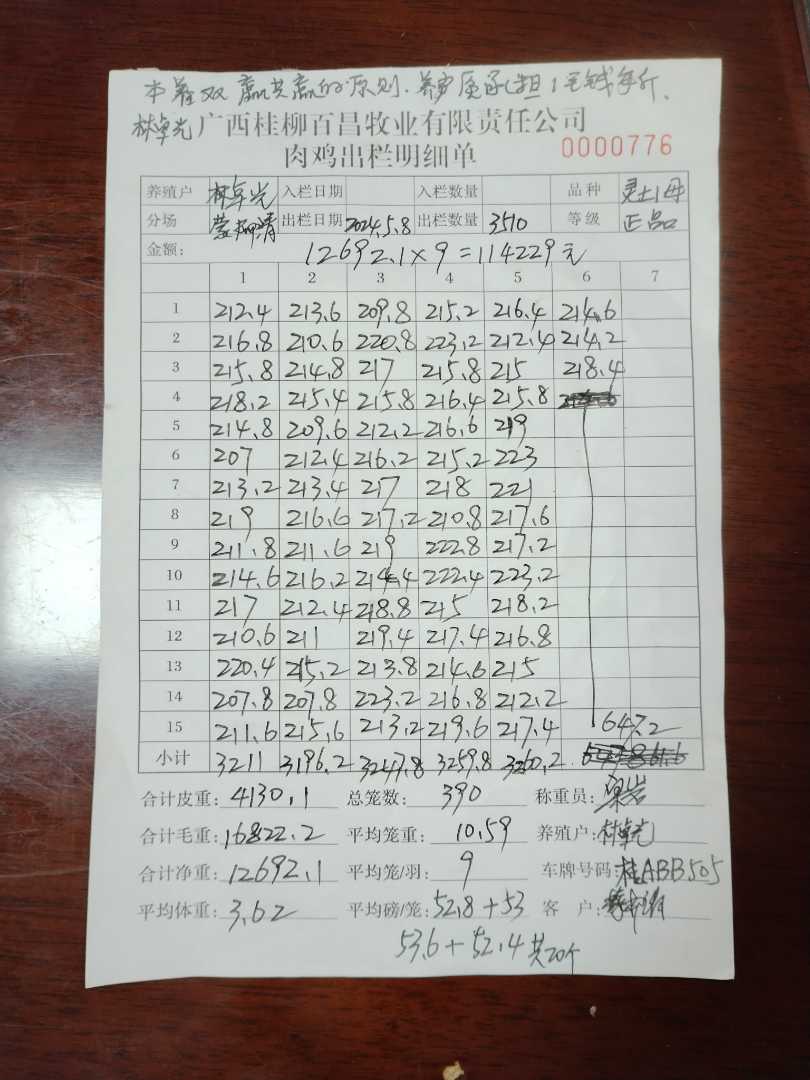 本着双赢共赢的原则.养户愿承担1毛钱每斤.
林卓光 广西桂柳百昌牧业有限责任公司
肉鸡出栏明细单 0000776
养殖户 林卓光 入栏日期 入栏数量 品种 灵土1母
分场 出栏日期 2024.5.8 出栏数量 3510 等级 正品
金额: 12692.1×9=114229元
1 2 3 4 5 6 7
1 212.4 213.6 209.8 215.2 216.4 214.6
2 216.8 210.6 220.8 223.2 212.4 214.2
3 215.8 214.8 217 215.8 215 218.4
4 218.2 215.4 215.8 216.4 215.8
5 214.8 209.6 212.2 216.6 219
6 207 212.4 216.2 215.2 223
7 213.2 213.4 217 218 221
8 219 216.6 217.2 210.8 217.6
9 211.8 211.6 219 222.8 217.2
10 214.6 216.2 214.4 222.4 223.2
11 217 212.4 218.8 215 218.2
12 210.6 211 219.4 217.4 216.8
13 220.4 215.2 213.8 214.6 215
14 207.8 207.8 223.2 216.8 212.2
15 211.6 215.6 213.2 219.6 217.4 647.2
小计 3211 3196.2 3247.8 3259.8 3260.2
合计皮重: 4130.1 总笼数: 390 称重员:
合计毛重: 16822.2 平均笼重: 10.59 养殖户: 林卓光
合计净重: 12692.1 平均笼/羽: 9 车牌号码: 桂ABB505
平均体重: 3.62 平均磅/笼: 52.8+53 客 户:
53.6+52.4 共20个